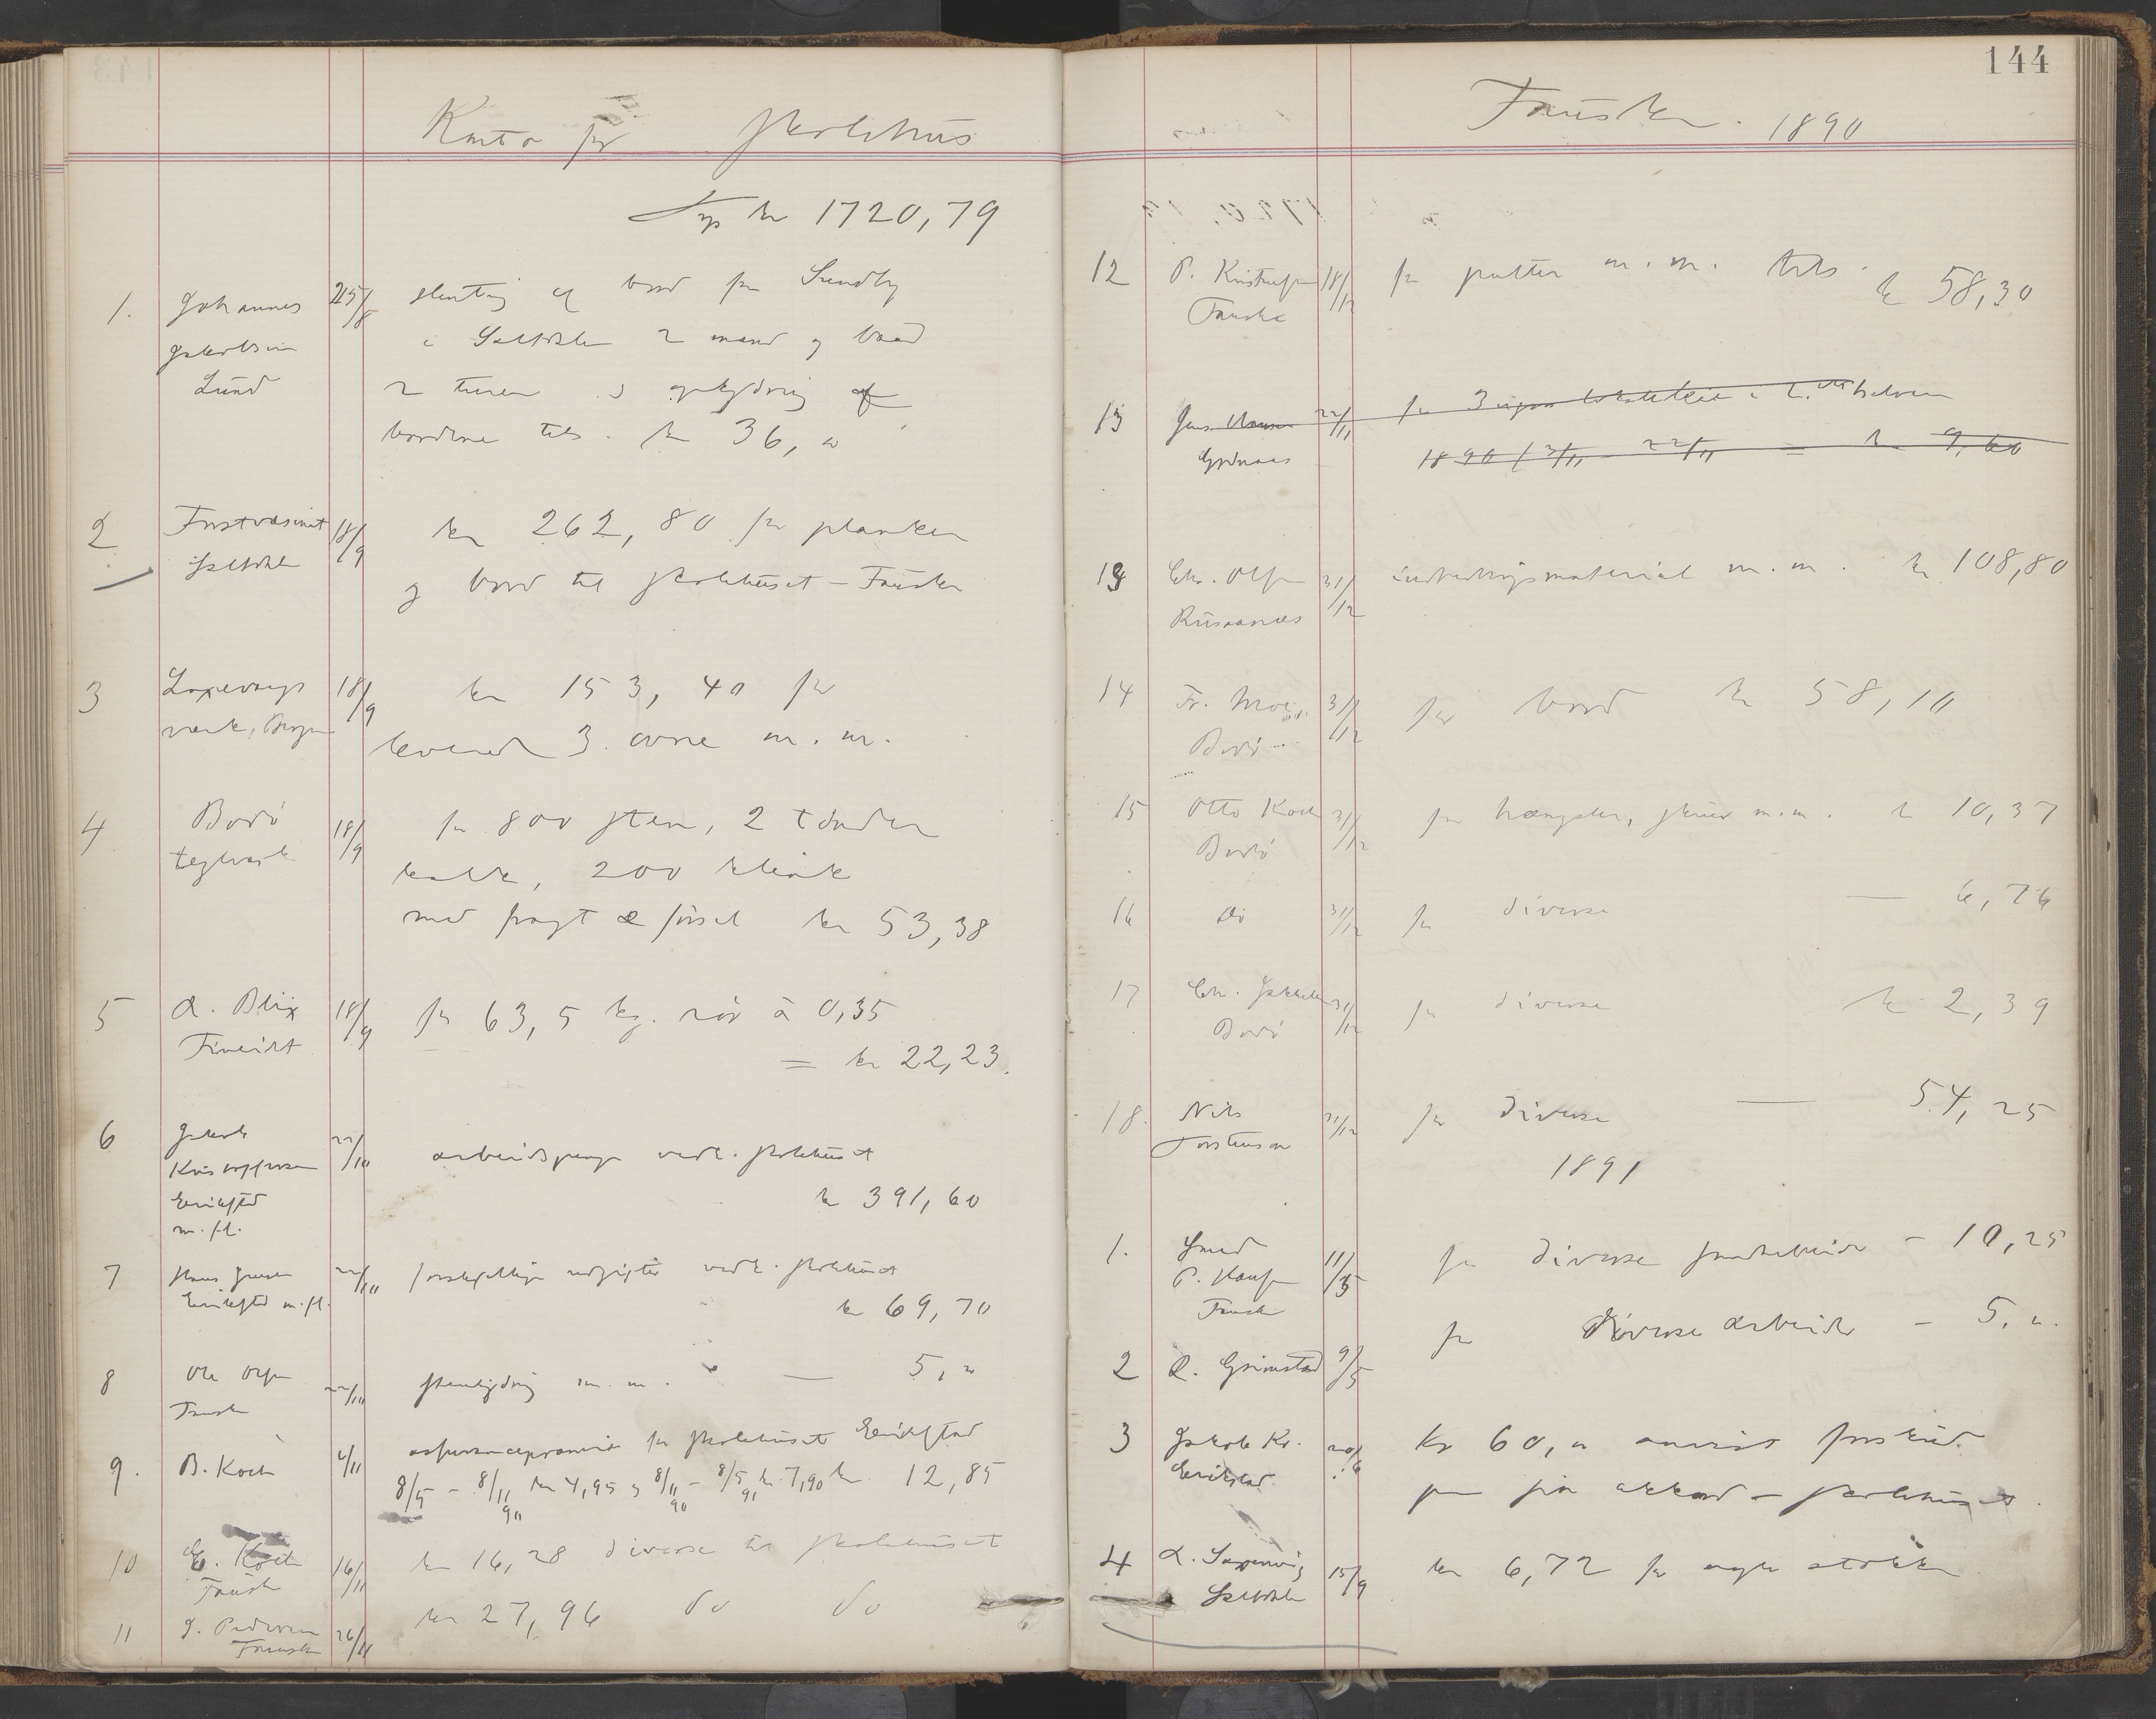 Konto for skolehus
kr 1720,79
1. Johannes 25/8 slenting af bord fra Sundby
Jakobsen i Saltdalen 2 mand og baad
Lund 2 turer og oplydning af
bordene tils. kr 36, "
2 Forstvæsenet 18/9 kr 262,80 for planker
Saltdalen og bord til skolehuset - Fauske
3 Laxevaags 18/9 kr 153,40 for
værk, Bergen leveret 3 ovne m.m.
4 Bodö 18/9 for 800 sten, 2 tönder
teglverk kalk, 200 klink
med fragt & försel kr 53,38
5 A. Blix 18/9 for 63,5 kg. rör à 0,35
Fineidet = kr 22,23.
6 Jakob 22/10 arbeidspenge vedk. skolehuset
Kristoffersen kr 391,60
Erikstad
m.fl.
7 Hans Jensen 22/10 forskjellige udgifter vedk. skolehuset
Erikstad m.fl. kr 69,70
8 Ole Olsen 22/10 m.m. — 5, "
Fauske
9. B. Koch 4/11 assurancepræmie for skolehuset Erikstad
8/5 - 8/11 90 kr 4,95 og 8/11 90 - 8/5 91 kr. 7,90 kr. 12,85
10 E. Koch 16/11 kr 16,28 diverse til skolehuset
Fauske
11 J. Pedersen 26/11 kr 27,96 do do
Fauske
144
Fauske. 1890
12 P. Kristensen 18/12 for m.m. tils. kr 58,30
Fauske
13 Jens Hansen 22/11 for 3 i
1890 (3/11 - 22/11 = kr 9,60
13 Chr. Olsen 31/12 indredningsmaterial m.m. kr 108,80
Riisaanæs
14 Fr. Moe 31/12 for bord kr 58,10
Bodö
15 Otto Koch 31/12 for hængsler, skruer m.m. kr 10,37
Bodö
16 do 31/12 for diverse — 6,76
17 Chr. Jakhelln 31/12 for diverse kr 2,39
Bodö
18. Nils 31/12 for diverse — 54,25
Torstensen
1891
1. Smed 11/5 for diverse smedarbeide - 10,25
P. Hansen
Fauske
for diverse arbeide - 5, "
2 A. Grimstad 9/5
3 Jakob Kr. 20/6 Kr 60, " anvist forskud
Erikstad paa sin akkord - skolehuset.
4 A. Saxenvig 15/9 kr 6,72 for
Saltdalen